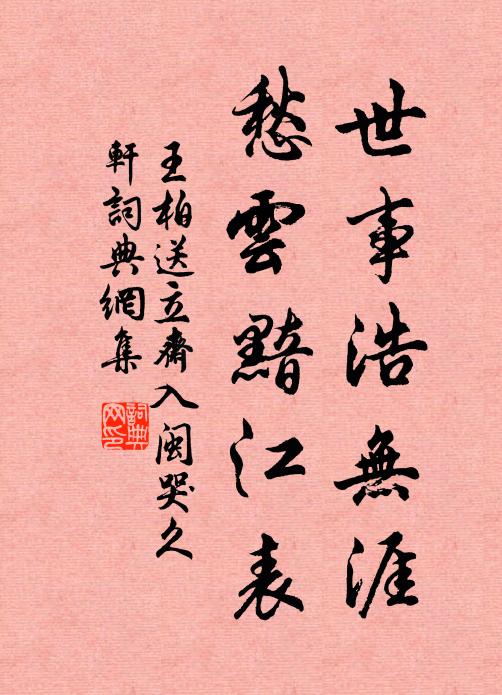 世事浩無涯
愁雲黯江表
王柏送立齋入閩哭久
軒詞典網集
詞典
网印